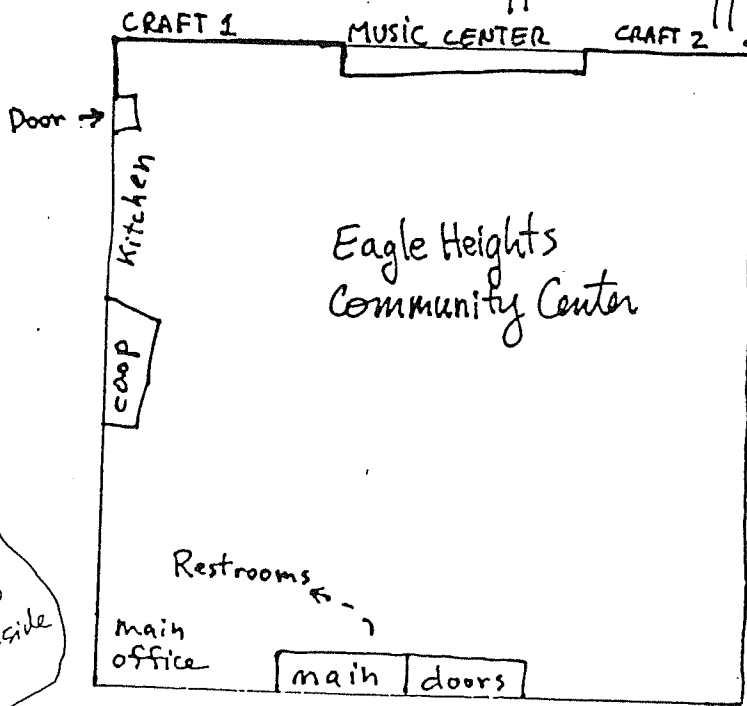 CRAFT 1
MUSIC CENTER
CRAFT 2
Door →
Kitchen
Eagle Heights
Community Center
coop
Restrooms
side
main
office
main doors